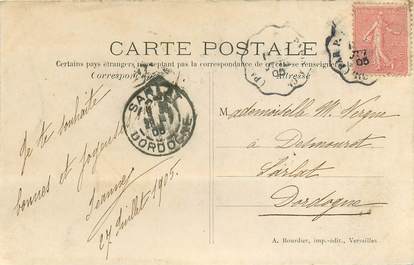 CARTE POSTALE
Certains pays étrangers n'acceptant pas la correspondance de ce côté, se renseigner
Correspondance
Adresse
Je te souhaite
bonnes et joyeuses
Jeanne
27 Juillet 1905.
SARLAT
DORDOGNE
Mademoiselle M. Vergne
à Desmouret
Sarlat
Dordogne
A. Bourdier, imp.-édit., Versailles.